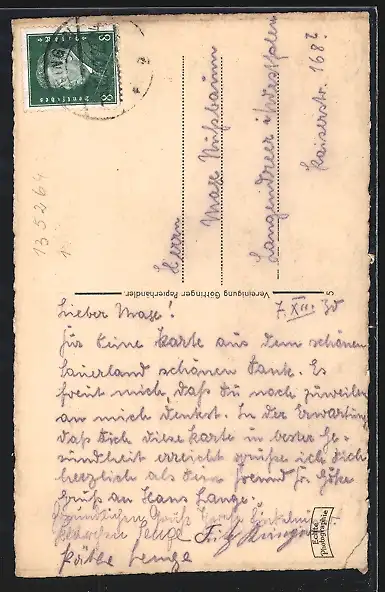 8 Deutsches Reich 8
135264
Herrn
Max Nußbaum
Langendreer i/Westfalen
Kaiserstr. 168?
Vereinigung Göttinger Papierhändler.
5
Lieber Max!
7. XII. 30
Für Deine Karte aus dem schönen
Sauerland schönen Dank. Es
freut mich, daß Du noch zuweilen
an mich denkst. In der Erwartung
daß Dich diese Karte in bester Ge-
sundheit erreicht grüße ich Dich
herzlich als Dein Freund
Gruß an Hans Lange.
Gruß
Lenge Fritz
Käthe Lenge
Echte
Photographie